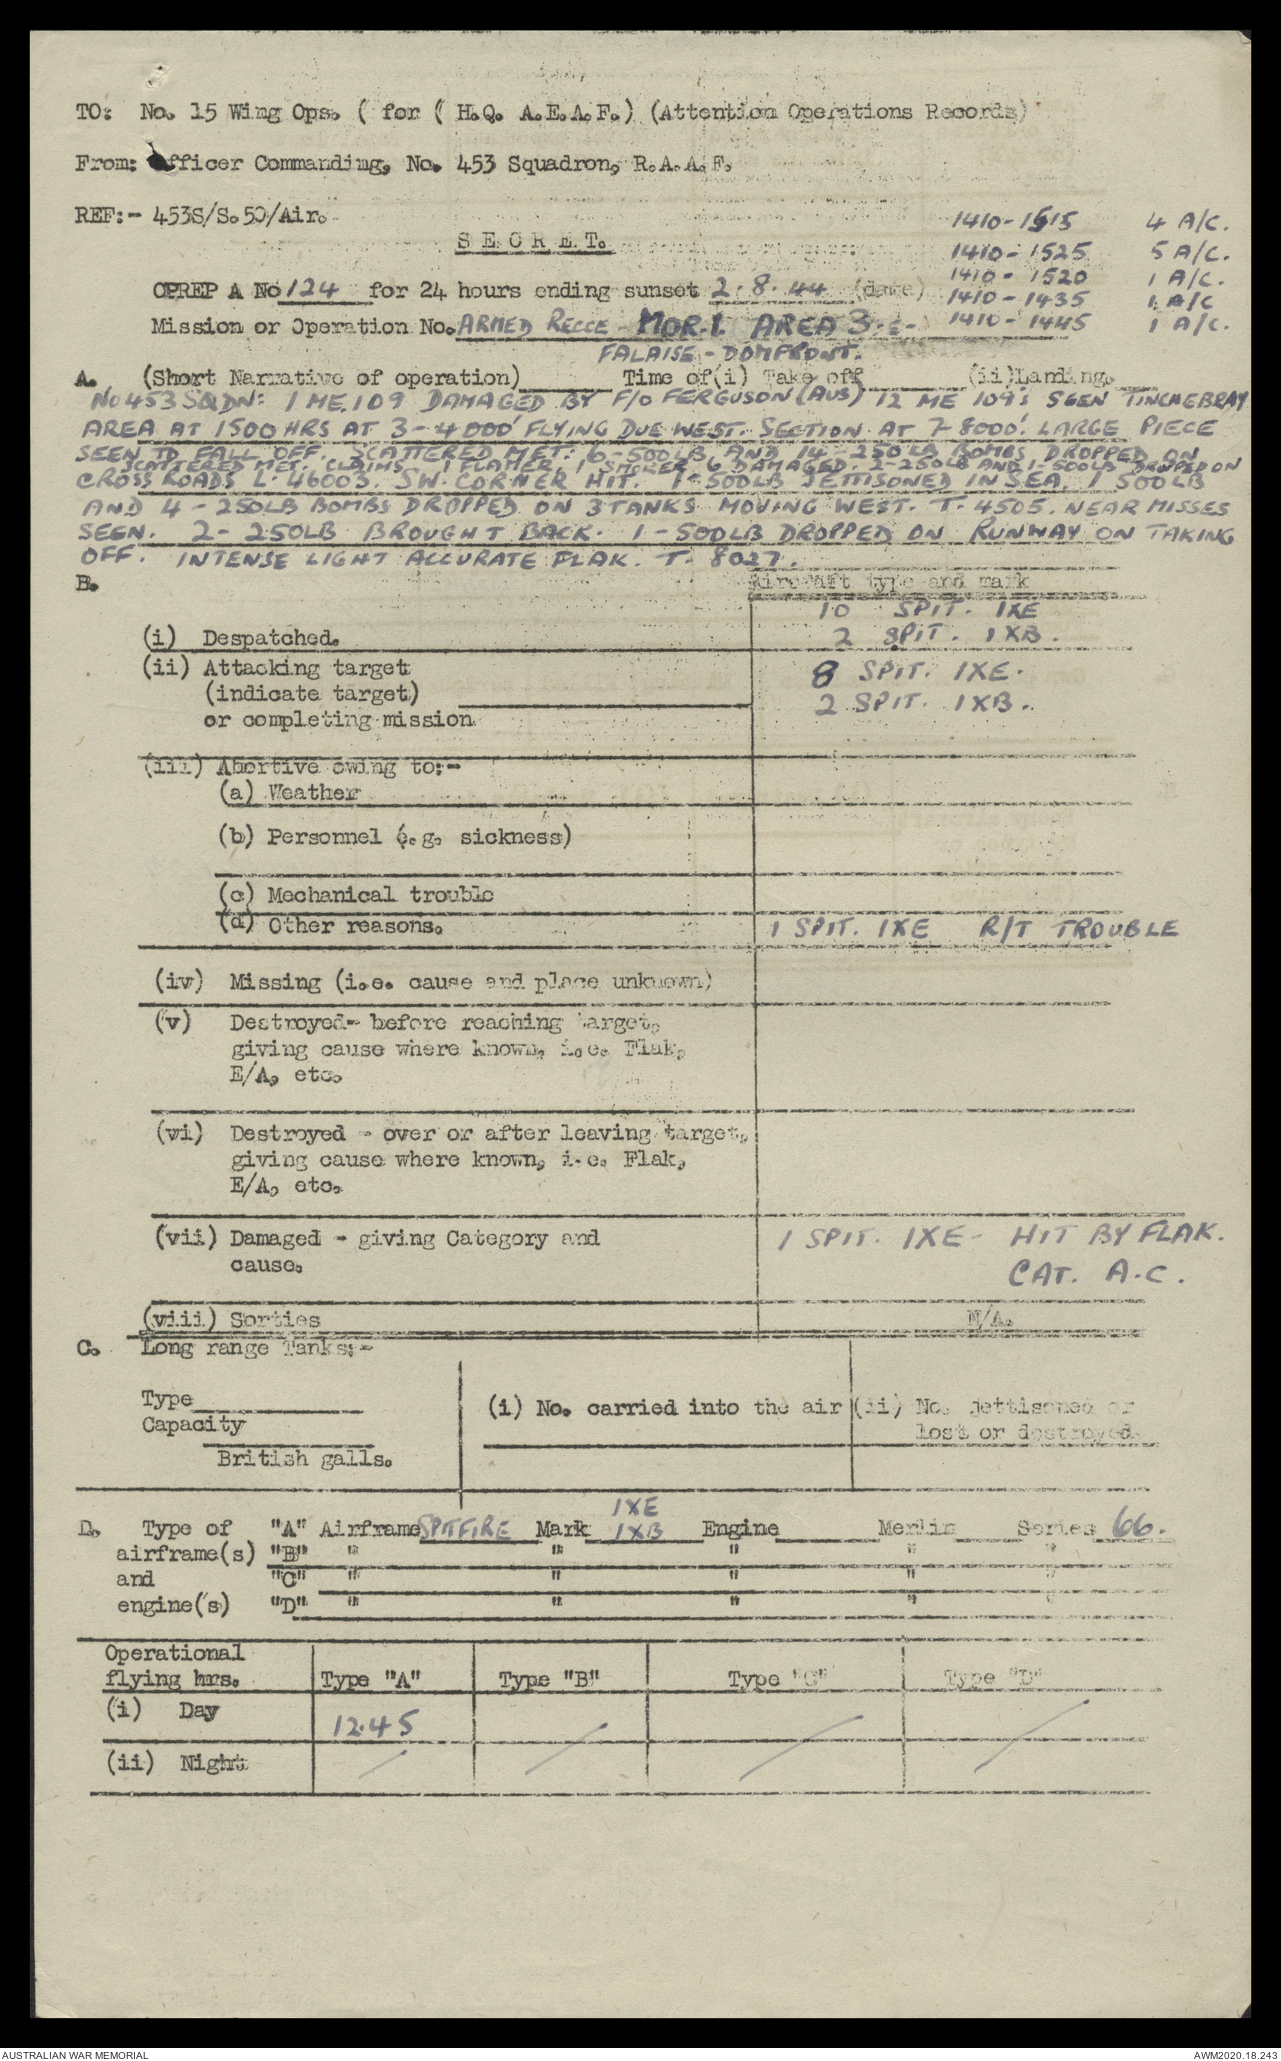 TO: No. 15 Wing Ops. ( for ( H.Q. A.E.A.F.) (Attention Operations Records)
From: Officer Commanding, No. 453 Squadron, R.A.A.F.
REF:- 453S/S.50/Air.
S E C R E T.
1410-1515 4 A/C.
1410-1525 5 A/C.
1410-1520 1 A/C.
1410-1435 1 A/C
1410-1445 1 A/C.
OPREP A No 124 for 24 hours ending sunset 2.8.44 (date)
Mission or Operation No. ARMED RECCE - MOR.1 AREA 3.
FALAISE - DOMFRONT.
A. (Short Narrative of operation) Time of(i) Take off (ii)Landing.
No 453 SQDN: 1 ME.109 DAMAGED BY F/O FERGUSON (AUS) 12 ME 109's SEEN TINCHEBRAY
AREA AT 1500 HRS AT 3-4000' FLYING DUE WEST. SECTION AT 7-8000'. LARGE PIECE
SEEN TO FALL OFF. SCATTERED MET: 6-500LB AND 14-250 LB BOMBS DROPPED ON
SCATTERED MET. CLAIMS 1 FLAMER, 1 SMOKER, 6 DAMAGED. 2-250LB AND 1-500LB DROPPED ON
CROSS ROADS L. 46003. SW. CORNER HIT. 1-500LB JETTISONED IN SEA. 1 500LB
AND 4-250LB BOMBS DROPPED ON 3 TANKS MOVING WEST. T. 4505. NEAR MISSES
SEEN. 2-250LB BROUGHT BACK. 1-500LB DROPPED ON RUNWAY ON TAKING
OFF. INTENSE LIGHT ACCURATE FLAK. T. 8027.
B. Aircraft type and mark
10 SPIT. IXE
(i) Despatched. 2 SPIT. IXB.
(ii) Attacking target 8 SPIT. IXE.
(indicate target) 2 SPIT. IXB.
or completing mission
(iii) Abortive owing to:-
(a) Weather
(b) Personnel (e.g. sickness)
(c) Mechanical trouble
(d) Other reasons. 1 SPIT. IXE R/T TROUBLE
(iv) Missing (i.e. cause and place unknown)
(v) Destroyed- before reaching target,
giving cause where known, i.e. Flak,
E/A, etc.
(vi) Destroyed - over or after leaving target,
giving cause where known, i.e. Flak,
E/A, etc.
(vii) Damaged - giving Category and 1 SPIT. IXE - HIT BY FLAK.
cause. CAT. A.C.
(viii) Sorties N/A.
C. Long range Tanks:-
Type (i) No. carried into the air (ii) No. jettisoned or
Capacity lost or destroyed.
British galls.
IXE
D. Type of "A" Airframe SPITFIRE Mark IXB Engine Merlin Series 66.
airframe(s) "B" " " " " "
and "C" " " " " "
engine(s) "D" " " " " "
Operational
flying hrs. Type "A" Type "B" Type "C" Type "D"
(i) Day 12.45
(ii) Night
AUSTRALIAN WAR MEMORIAL AWM2020.18.243